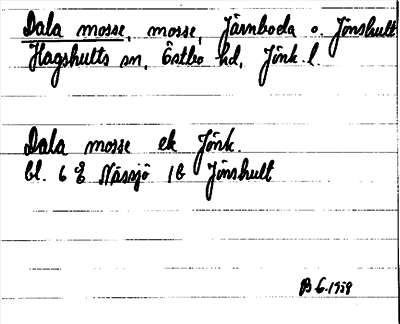 Dala mosse, mosse, Järnboda o. Jönshult
Hagshults sn, Östbo hd, Jönk. l
Dala mosse ek Jönk.
bl. 6 E Nässjö 1b Jönshult
B G. 1958